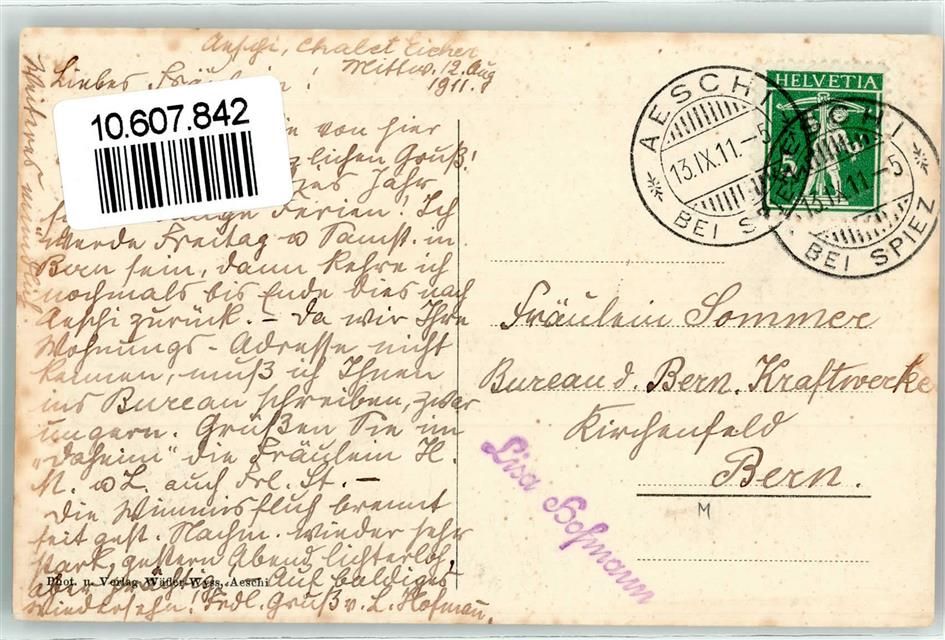 Aeschi, Chalet Eicher
Mittw. 12. Aug
1911.
Liebes Fräulein!
10.607.842
von hier
zlichen Gruß!
Jahr
Ferien! Ich
werde Freitag & Samst. in
Bern sein, dann kehre ich
nochmals bis Ende dies nach
Aeschi zurück. – Da wir Ihre
Wohnungs-Adresse nicht
kennen, muß ich Ihnen
ins Bureau schreiben, zwar
ungern. Grüßen Sie im
"Daheim" die Fräulein H.
M. & L. auch Frl. St. –
Die Wimmisfluh brennt
seit gest. Nachm. wieder sehr
stark, gestern Abend lichterloh,
aber Auf baldiges
Wiedersehn! Frdl. Gruß v. L. Hofmann.
Weiteres mündlich
Phot. u. Verlag Wäfler-Wyss, Aeschi
AESCHI
13.IX.11.-5
BEI SPIEZ
HELVETIA
5
AESCHI
13.IX.11.-5
BEI SPIEZ
Fräulein Sommer
Bureau d. Bern. Kraftwerke
Kirchenfeld
Bern.
M
Lisa Hofmann